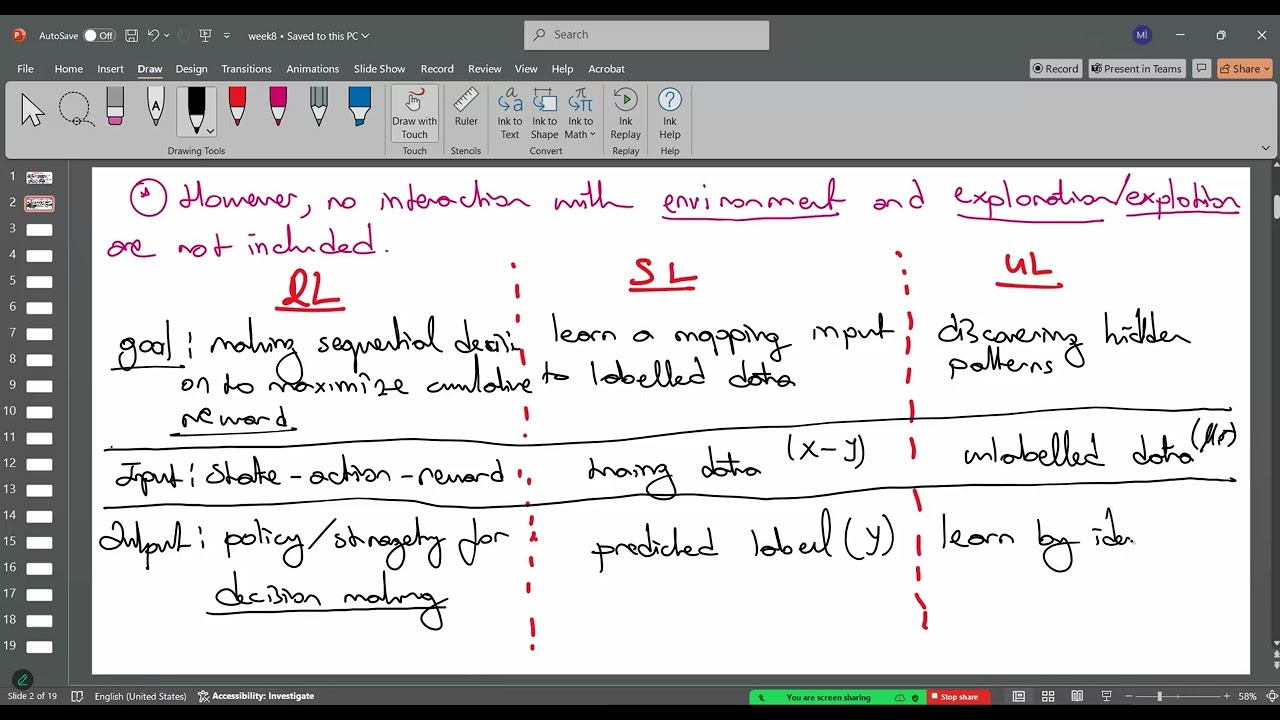 AutoSave Off week8 • Saved to this PC Search MI
File Home Insert Draw Design Transitions Animations Slide Show Record Review View Help Acrobat Record Present in Teams Share
Draw with Touch Ruler Ink to Text Ink to Shape Ink to Math Ink Replay Ink Help
Drawing Tools Touch Stencils Convert Replay Help
However, no interaction with environment and exploration/explotion
are not included.
RL SL UL
goal : making sequential decisi learn a mapping input discovering hidden
on to maximize cumulative to labelled data patterns
reward
Input : state - action - reward traing data (X - y) unlabelled data
Output : policy/stragety for predicted label (y) learn by iden
decision making
1
2
3
4
5
6
7
8
9
10
11
12
13
14
15
16
17
18
19
Slide 2 of 19 English (United States) Accessibility: Investigate You are screen sharing Stop share 58%